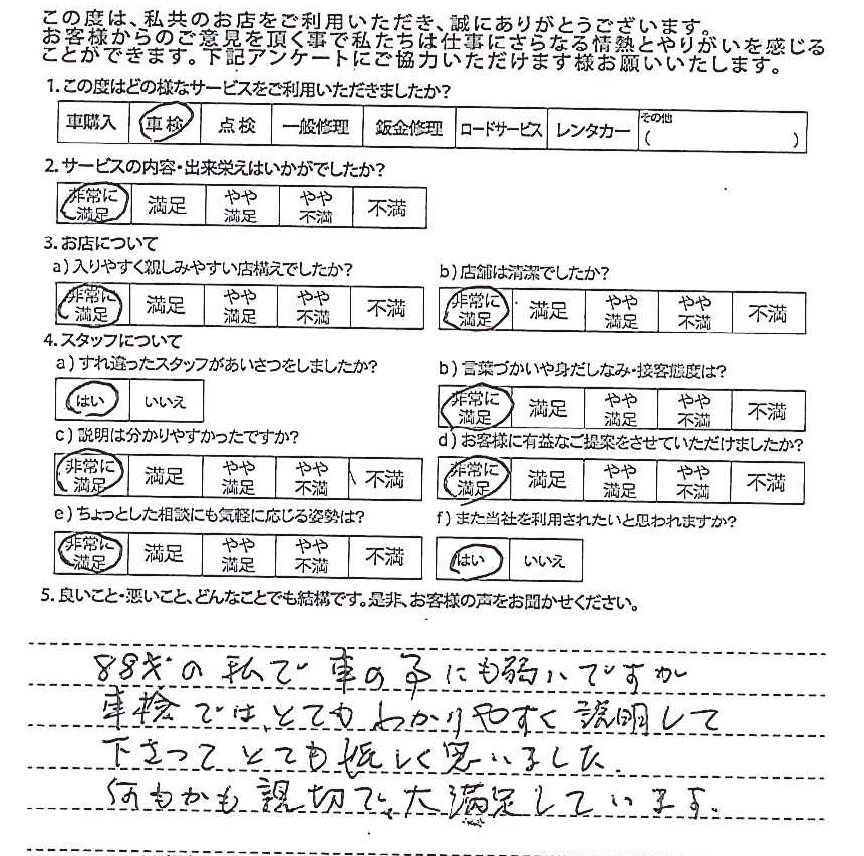 この度は、私共のお店をご利用いただき、誠にありがとうございます。
お客様からのご意見を頂く事で私たちは仕事にさらなる情熱とやりがいを感じる
ことができます。下記アンケートにご協力いただけます様お願いいたします。
1.この度はどの様なサービスをご利用いただきましたか?
車購入 車検 点検 一般修理 鈑金修理 ロードサービス レンタカー その他 ( )
2.サービスの内容・出来栄えはいかがでしたか?
非常に満足 満足 やや満足 やや不満 不満
3.お店について
a)入りやすく親しみやすい店構えでしたか?
非常に満足 満足 やや満足 やや不満 不満
b)店舗は清潔でしたか?
非常に満足 満足 やや満足 やや不満 不満
4.スタッフについて
a)すれ違ったスタッフがあいさつをしましたか?
はい いいえ
b)言葉づかいや身だしなみ・接客態度は?
非常に満足 満足 やや満足 やや不満 不満
c)説明は分かりやすかったですか?
非常に満足 満足 やや満足 やや不満 不満
d)お客様に有益なご提案をさせていただけましたか?
非常に満足 満足 やや満足 やや不満 不満
e)ちょっとした相談にも気軽に応じる姿勢は?
非常に満足 満足 やや満足 やや不満 不満
f)また当社を利用されたいと思われますか?
はい いいえ
5.良いこと・悪いこと、どんなことでも結構です。是非、お客様の声をお聞かせください。
88才の私で車の事にも弱いですが
車検では、とてもわかりやすく説明して
下さって、とても嬉しく思いました。
何もかも親切で、大満足しています。